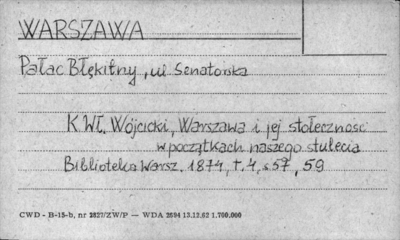 WARSZAWA
Pałac Błękitny, ul Senatorska
K.Wł. Wójcicki, Warszawa i jej stołeczność
w początkach naszego stulecia
Biblioteka Warsz. 1874, T. 4, s 57, 59
CWD - B-15-b, nr 2827/ZW/P — WDA 2694 13.12.62 1.700.000